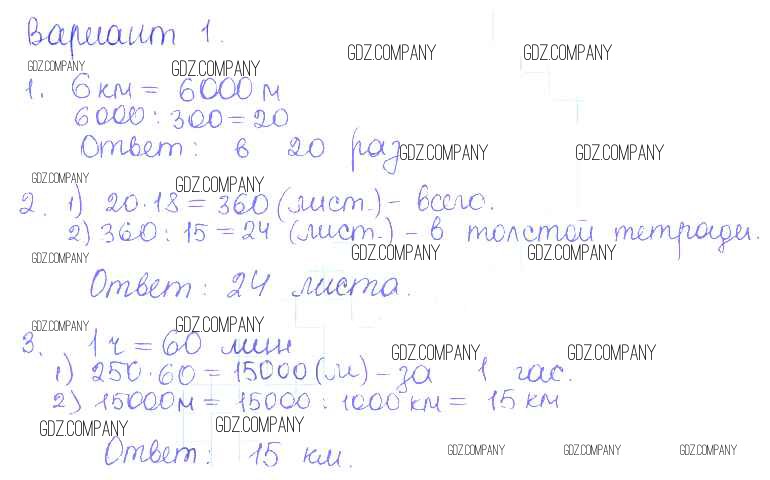 Вариант 1.
GDZ.COMPANY GDZ.COMPANY
GDZ.COMPANY GDZ.COMPANY
1. 6 км = 6000 м
6000 : 300 = 20
Ответ: в 20 раз
GDZ.COMPANY GDZ.COMPANY
GDZ.COMPANY GDZ.COMPANY
2. 1) 20·18 = 360 (лист.) – всего.
2) 360 : 15 = 24 (лист.) – в толстой тетради.
GDZ.COMPANY GDZ.COMPANY GDZ.COMPANY
Ответ: 24 листа.
GDZ.COMPANY GDZ.COMPANY
3. 1 ч = 60 мин
GDZ.COMPANY GDZ.COMPANY
1) 250·60 = 15000 (м) – за 1 час.
2) 15000 м = 15000 : 1000 км = 15 км
GDZ.COMPANY GDZ.COMPANY
Ответ: 15 км.
GDZ.COMPANY GDZ.COMPANY GDZ.COMPANY